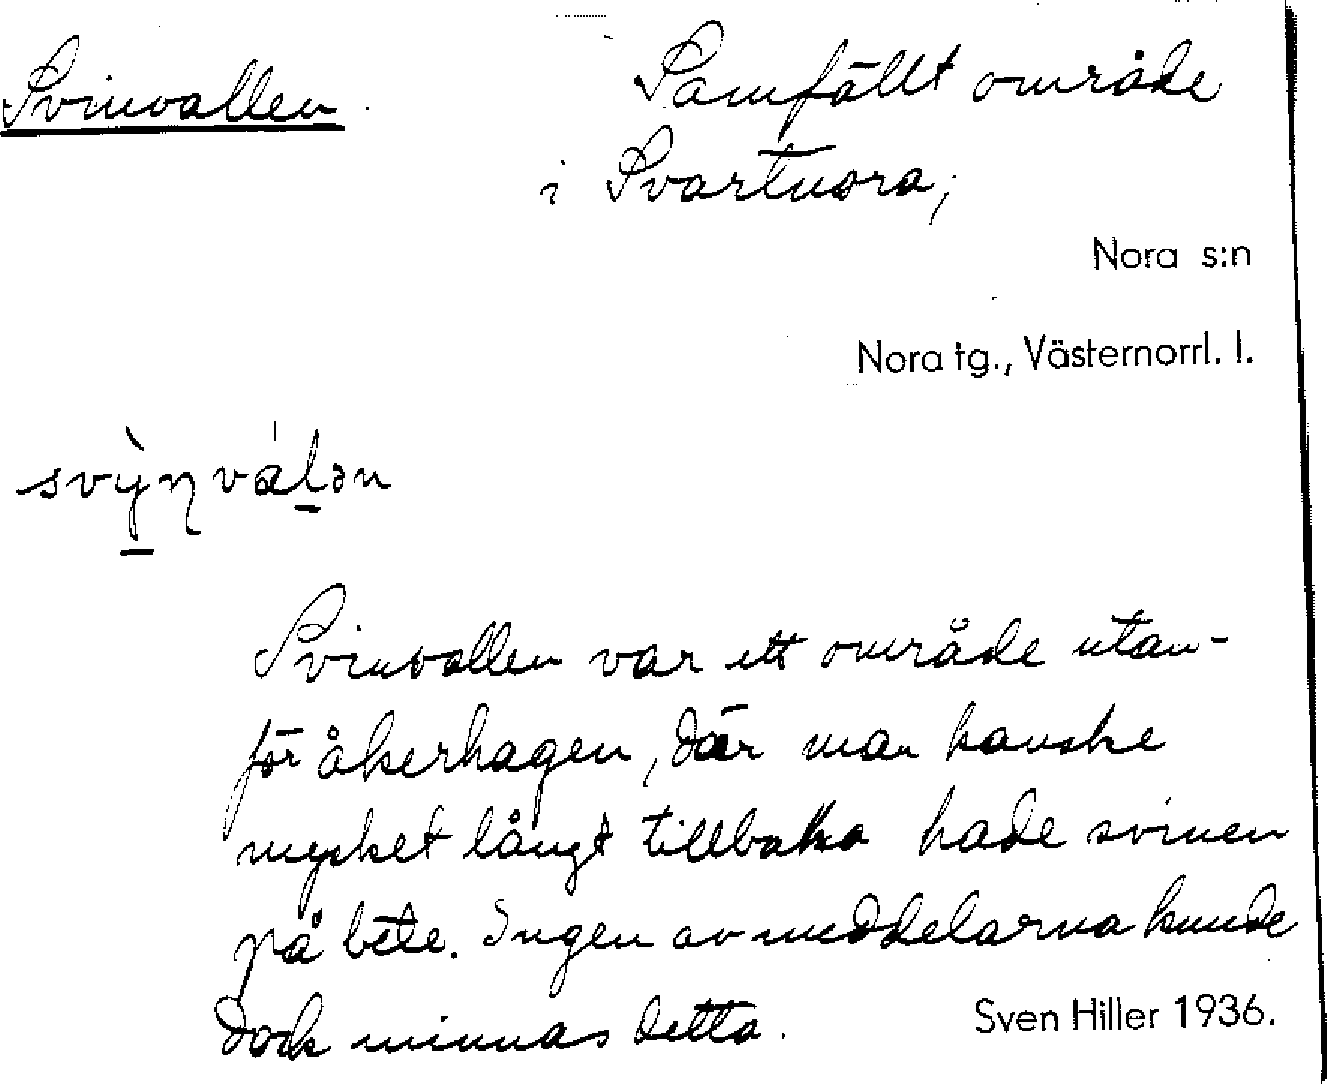 Svinvallen
Samfällt område
i Svartnora,
Nora s:n
Nora tg., Västernorrl. l.
svỳŋválən
Svinvallen var ett område utan-
för åkerhagen, där man kanske
mycket långt tillbaka hade svinen
på bete. Ingen av meddelarna kunde
dock minnas detta.
Sven Hiller 1936.